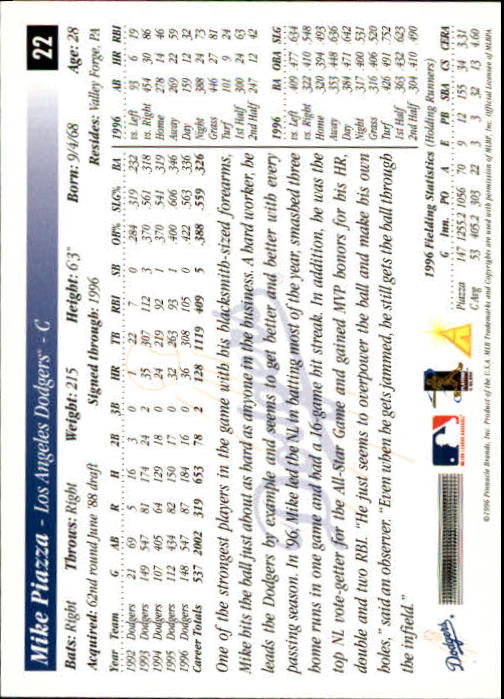 Mike Piazza - Los Angeles Dodgers™ - C 22
Bats: Right Throws: Right Weight: 215 Height: 6'3" Born: 9/4/68 Age: 28
Acquired: 62nd round June '88 draft Signed through: 1996 Resides: Valley Forge, PA
Year Team G AB R H 2B 3B HR TB RBI SB OB% SLG% BA
1992 Dodgers 21 69 5 16 3 0 1 22 7 0 .284 .319 .232
1993 Dodgers 149 547 81 174 24 2 35 307 112 3 .370 .561 .318
1994 Dodgers 107 405 64 129 18 0 24 219 92 1 .370 .541 .319
1995 Dodgers 112 434 82 150 17 0 32 263 93 1 .400 .606 .346
1996 Dodgers 148 547 87 184 16 0 36 308 105 0 .422 .563 .336
Career Totals 537 2002 319 653 78 2 128 1119 409 5 .388 .559 .326
One of the strongest players in the game with his blacksmith-sized forearms,
Mike hits the ball just about as hard as anyone in the business. A hard worker, he
leads the Dodgers by example and seems to get better and better with every
passing season. In '96, Mike led the NL in batting most of the year, smashed three
home runs in one game and had a 16-game hit streak. In addition, he was the
top NL vote-getter for the All-Star Game and gained MVP honors for his HR,
double and two RBI. "He just seems to overpower the ball and make his own
holes." said an observer. "Even when he gets jammed, he still gets the ball through
the infield."
1996 AB HR RBI
vs. Left 93 6 19
vs. Right 454 30 86
Home 278 14 46
Away 269 22 59
Day 159 12 32
Night 388 24 73
Grass 446 27 81
Turf 101 9 24
1st Half 300 24 63
2nd Half 247 12 42
1996 BA OBA SLG
vs. Left .409 .477 .634
vs. Right .322 .410 .548
Home .320 .394 .493
Away .353 .448 .636
Day .384 .471 .642
Night .317 .400 .531
Grass .316 .406 .520
Turf .426 .491 .752
1st Half .363 .432 .623
2nd Half .304 .410 .490
1996 Fielding Statistics (Holding Runners)
G Inn. PO A E PB SBA CS CERA
Piazza 147 1255.2 1056 70 9 12 155 34 3.31
C Avg 53 405.2 303 22 3 3 32 13 4.60
Dodgers
Dodgers
MAJOR LEAGUE BASEBALL
© 1996 Pinnacle Brands, Inc. Product of the U.S.A. MLB Trademarks and Copyrights are used with permission of MLBP, Inc. Official Licensee of MLBPA